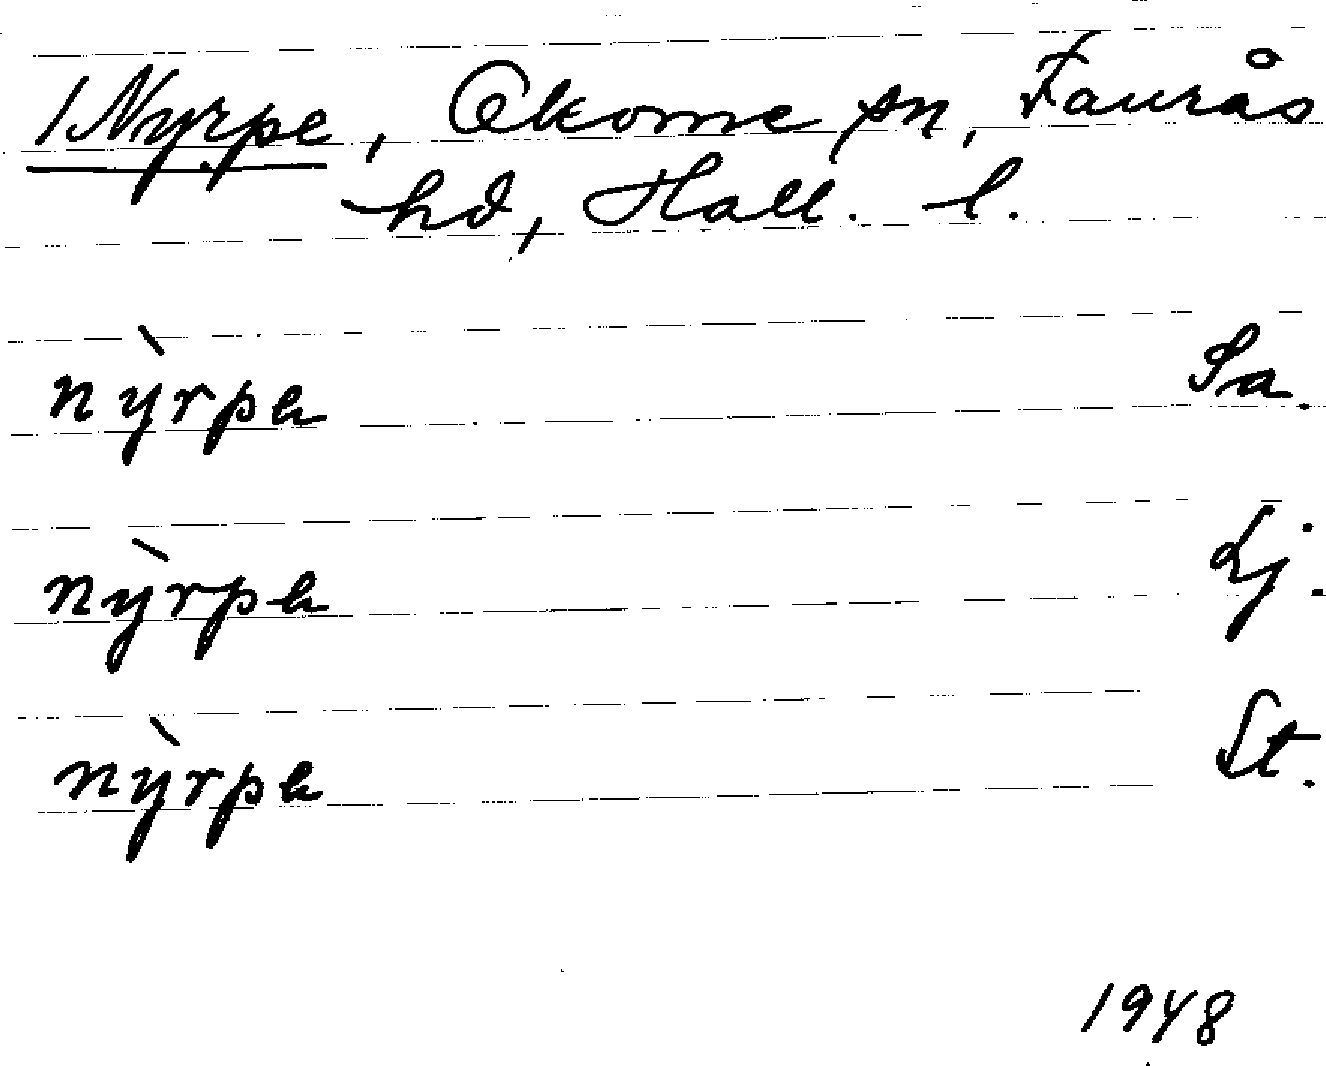 1 Nyrpe, Okome sn, Faurås
hd, Hall. l.
nỳrpə Sa.
nỳrpə Lj.
nỳrpə St.
1948